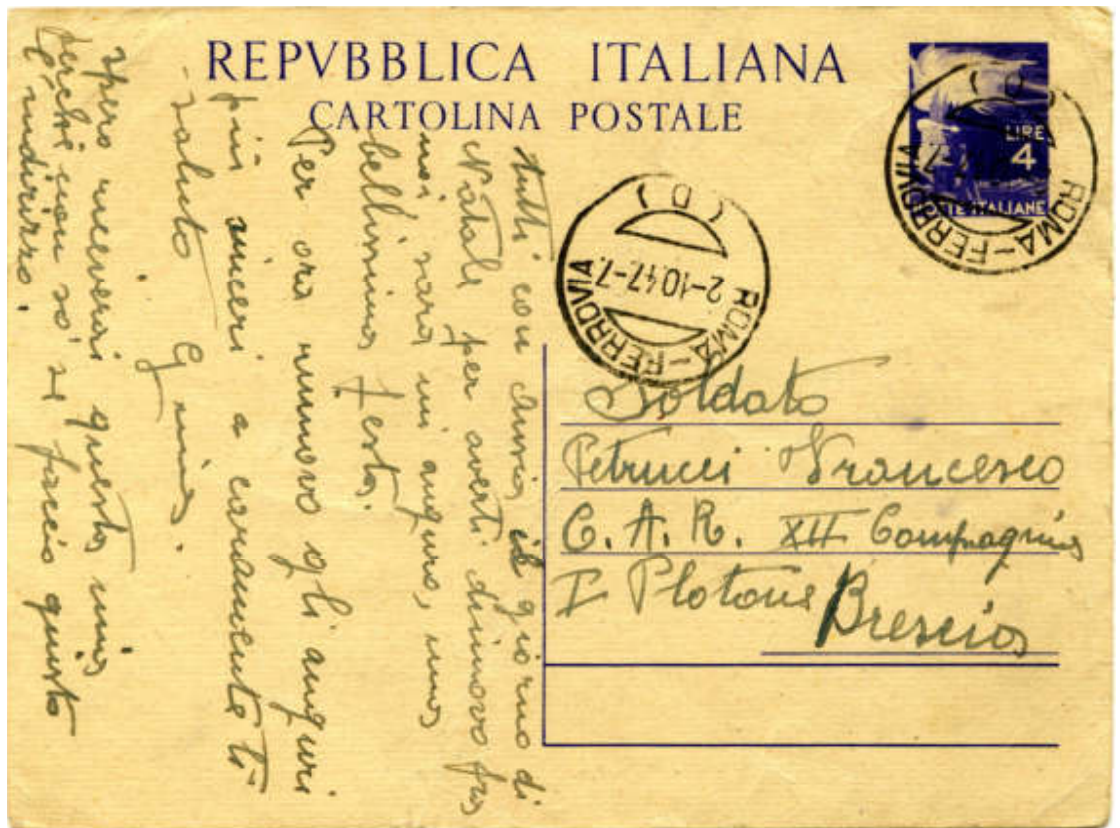 REPVBBLICA ITALIANA
CARTOLINA POSTALE
LIRE
4
POSTE ITALIANE
ROMA-FERROVIA
(D)
ROMA-FERROVIA
(D)
2-10 47-7
Soldato
Petrucci Francesco
C. A. R. XII Compagnia
I Plotone
Brescia
tutti con ansia il giorno di
Natale per averti dinuovo fra
noi sarà mi auguro, una
bellissima festa.
Per ora rinnovo gli auguri
più sinceri e caramente ti
saluto Gina.
Spero riceverai questa mia
perchè non sò se faccio giusto
l'indirizzo.